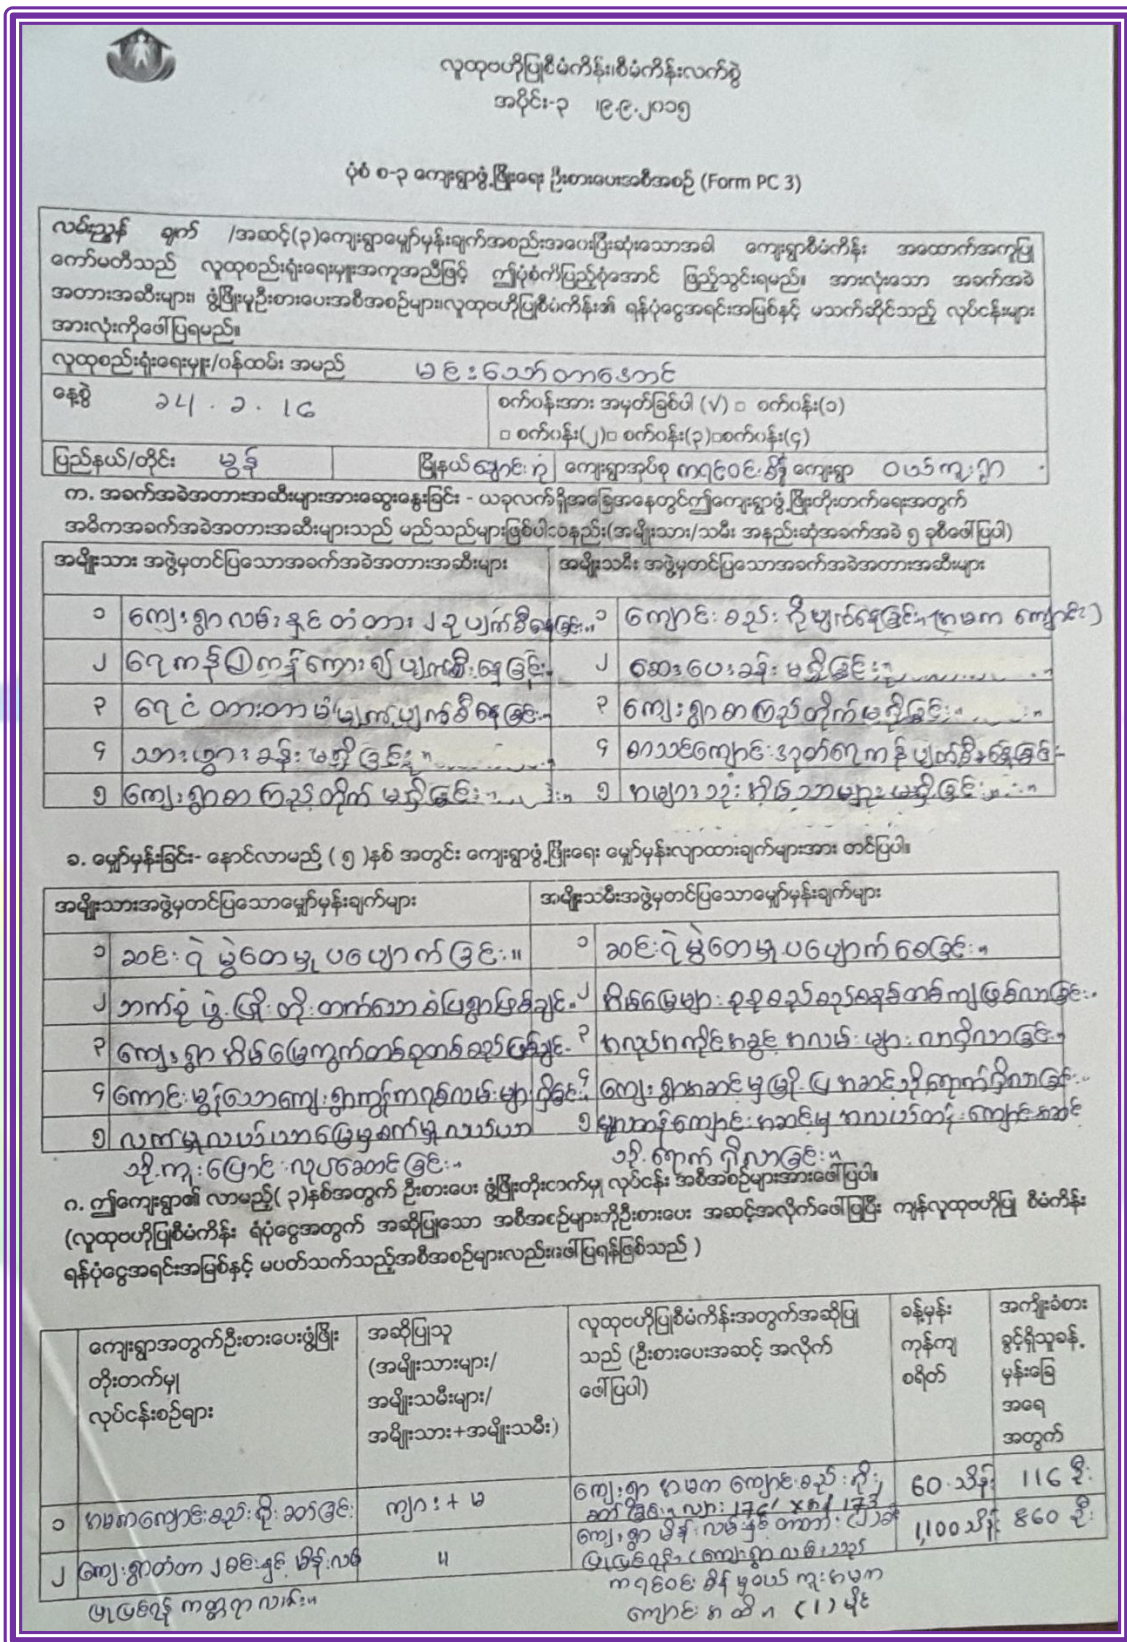 လူထုဗဟိုပြုစီမံကိန်း၊စီမံကိန်းလက်စွဲ
အပိုင်း-၃ ၊၉.၉.၂၀၁၅
ပုံစံ စ-၃ ကျေးရွာဖွံ့ဖြိုးရေး ဦးစားပေးအစီအစဉ် (Form PC 3)
လမ်းညွှန် ချက် /အဆင့်(၃)ကျေးရွာမျှော်မှန်းချက်အစည်းအဝေးပြီးဆုံးသောအခါ ကျေးရွာစီမံကိန်း အထောက်အကူပြု
ကော်မတီသည် လူထုစည်းရုံးရေးမှူးအကူအညီဖြင့် ဤပုံစံကိုပြည့်စုံအောင် ဖြည့်သွင်းရမည်။ အားလုံးသော အခက်အခဲ
အတားအဆီးများ၊ ဖွံ့ဖြိုးမှုဦးစားပေးအစီအစဉ်များ၊လူထုဗဟိုပြုစီမံကိန်း၏ ရန်ပုံငွေအရင်းအမြစ်နှင့် မသက်ဆိုင်သည့် လုပ်ငန်းများ
အားလုံးကိုဖေါ်ပြရမည်။
လူထုစည်းရုံးရေးမှူး/ဝန်ထမ်း အမည် မင်းသော်တာအောင်
နေ့စွဲ ၁၄.၁.၁၆ စက်ဝန်းအား အမှတ်ခြစ်ပါ (√) □ စက်ဝန်း(၁)
□ စက်ဝန်း(၂)□ စက်ဝန်း(၃)□စက်ဝန်း(၄)
ပြည်နယ်/တိုင်း မွန် မြို့နယ် ချောင်းဆုံ ကျေးရွာအုပ်စု ကရင်ဝင်းစိန် ကျေးရွာ ဝယ်ကူးရွာ
က. အခက်အခဲအတားအဆီးများအားဆွေးနွေးခြင်း - ယခုလက်ရှိအခြေအနေတွင်ဤကျေးရွာဖွံ့ဖြိုးတိုးတက်ရေးအတွက်
အဓိကအခက်အခဲအတားအဆီးများသည် မည်သည်များဖြစ်ပါသနည်း(အမျိုးသား/သမီး အနည်းဆုံအခက်အခဲ ၅ ခုစီဖေါ်ပြပါ)
အမျိုးသား အဖွဲ့မှတင်ပြသောအခက်အခဲအတားအဆီးများ အမျိုးသမီး အဖွဲ့မှတင်ပြသောအခက်အခဲအတားအဆီးများ
၁ ကျေးရွာလမ်းနှင့်တံတား ၂ ခုပျက်စီးနေခြင်း။ ၁ ကျောင်းစည်းရိုးပျက်နေခြင်း (အမက ကျောင်း)
၂ ရေကန် ပျက်စီးနေခြင်း ၂ ဆေးပေးခန်းမရှိခြင်း။
၃ ရေငံတားတာမံ ပျက်စီးနေခြင်း။ ၃ ကျေးရွာစာကြည့်တိုက်မရှိခြင်း။
၄ သားဖွားခန်းမရှိခြင်း။ ၄ စာသင်ကျောင်း ရေကန်ပျက်စီးနေခြင်း
၅ ကျေးရွာစာကြည့်တိုက်မရှိခြင်း။ ၅ အများသုံးအိမ်သာများမရှိခြင်း။
ခ. မျှော်မှန်းခြင်း- နောင်လာမည့် (၅)နှစ် အတွင်း ကျေးရွာဖွံ့ဖြိုးရေး မျှော်မှန်းလျာထားချက်များအား တင်ပြပါ။
အမျိုးသားအဖွဲ့မှတင်ပြသောမျှော်မှန်းချက်များ အမျိုးသမီးအဖွဲ့မှတင်ပြသောမျှော်မှန်းချက်များ
၁ ဆင်းရဲမွဲတေမှုပပျောက်ခြင်း။ ၁ ဆင်းရဲမွဲတေမှုပပျောက်စေခြင်း။
၂ ဘက်စုံဖွံ့ဖြိုးတိုးတက်သောစံပြရွာဖြစ်ချင်။ ၂ အိမ်မြေများစုစုစည်းစည်းစနစ်တစ်ကျဖြစ်လာခြင်း။
၃ ကျေးရွာအိမ်မြေကွက်တစ်စုတစ်စည်းဖြစ်ချင်- ၃ အလုပ်အကိုင်အခွင့်အလမ်းများလာရှိလာခြင်း။
၄ ကောင်းမွန်သောကျေးရွာကွန်ကရစ်လမ်းများရှိခြင်း။ ၄ ကျေးရွာအဆင့်မှမြို့ပြအဆင့်သို့ရောက်ရှိလာခြင်း။
၅ လက်မှုလယ်ယာမြေမှစက်မှုလယ်ယာ ၅ မူလတန်းကျောင်းအဆင့်မှအလယ်တန်းကျောင်းအဆင့်
သို့ကူးပြောင်းလုပ်ဆောင်ခြင်း။ သို့ရောက်ရှိလာခြင်း။
ဂ. ဤကျေးရွာ၏ လာမည့်(၃)နှစ်အတွက် ဦးစားပေး ဖွံ့ဖြိုးတိုးတက်မှု လုပ်ငန်း အစီအစဉ်များအားဖေါ်ပြပါ။
(လူထုဗဟိုပြုစီမံကိန်း ရံပုံငွေအတွက် အဆိုပြုသော အစီအစဉ်များကိုဦးစားပေး အဆင့်အလိုက်ဖေါ်ပြပြီး ကျန်လူထုဗဟိုပြု စီမံကိန်း
ရန်ပုံငွေအရင်းအမြစ်နှင့် မပတ်သက်သည့်အစီအစဉ်များလည်းဖေါ်ပြရန်ဖြစ်သည် )
ကျေးရွာအတွက်ဦးစားပေးဖွံ့ဖြိုး
တိုးတက်မှု
လုပ်ငန်းစဉ်များ
အဆိုပြုသူ
(အမျိုးသားများ/
အမျိုးသမီးများ/
အမျိုးသား+အမျိုးသမီး)
လူထုဗဟိုပြုစီမံကိန်းအတွက်အဆိုပြု
သည် (ဦးစားပေးအဆင့် အလိုက်
ဖေါ်ပြပါ)
ခန့်မှန်း
ကုန်ကျ
စရိတ်
အကျိုးခံစား
ခွင့်ရှိသူခန့်
မှန်းခြေ
အရေ
အတွက်
၁ အမကကျောင်းစည်းရိုးဆတ်ခြင်း ကျား+မ ကျေးရွာ အမက ကျောင်းစည်းရိုး 60 သိန်း 116 ဦး
၂ ကျေးရွာတံတာ ၂ စင်းနှင့် မိန်းလမ် " ကျေးရွာ မိန်းလမ်းနှင့် တံတား 1,100သိန်း 860 ဦး
ပြုပြင်ရန် ကတ္တရာလမ်း။ ကရင်ဝင်းစိန်မှဝယ်ကူးအမက
ကျောင်းအထိ။ (1) မိုင်